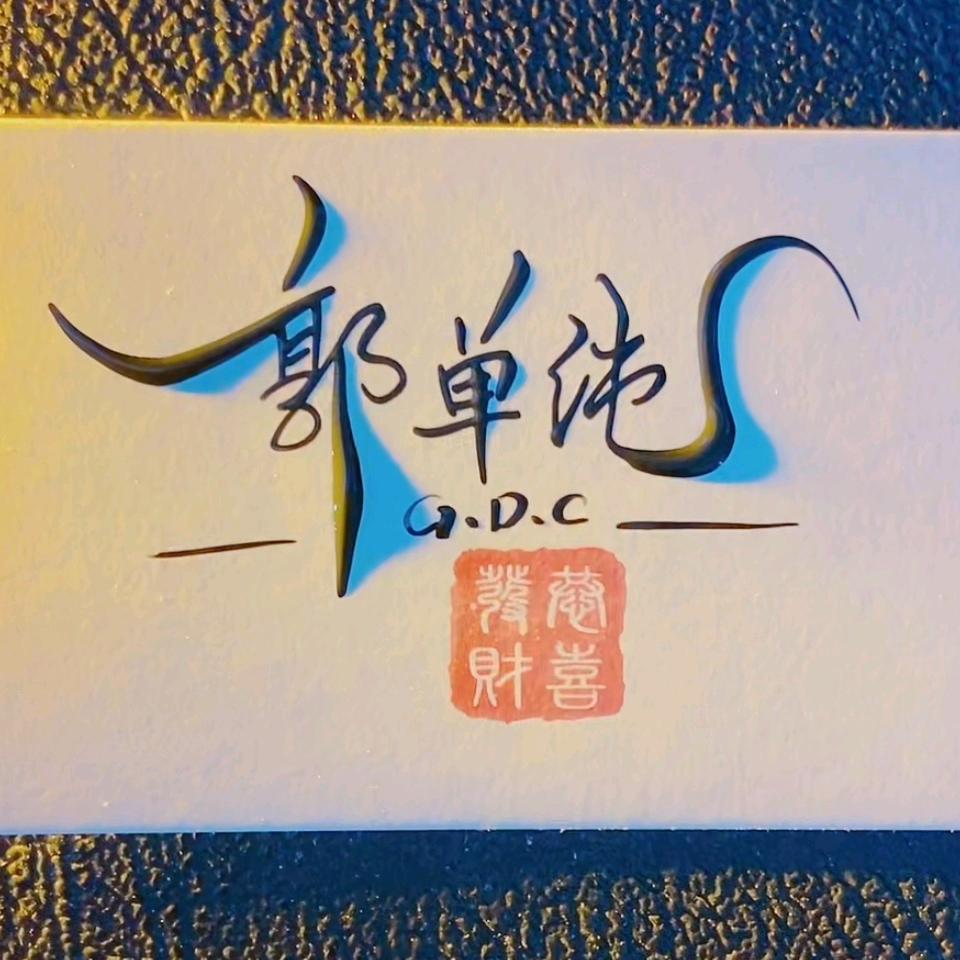 郭单纯
G.D.C
恭喜
發財